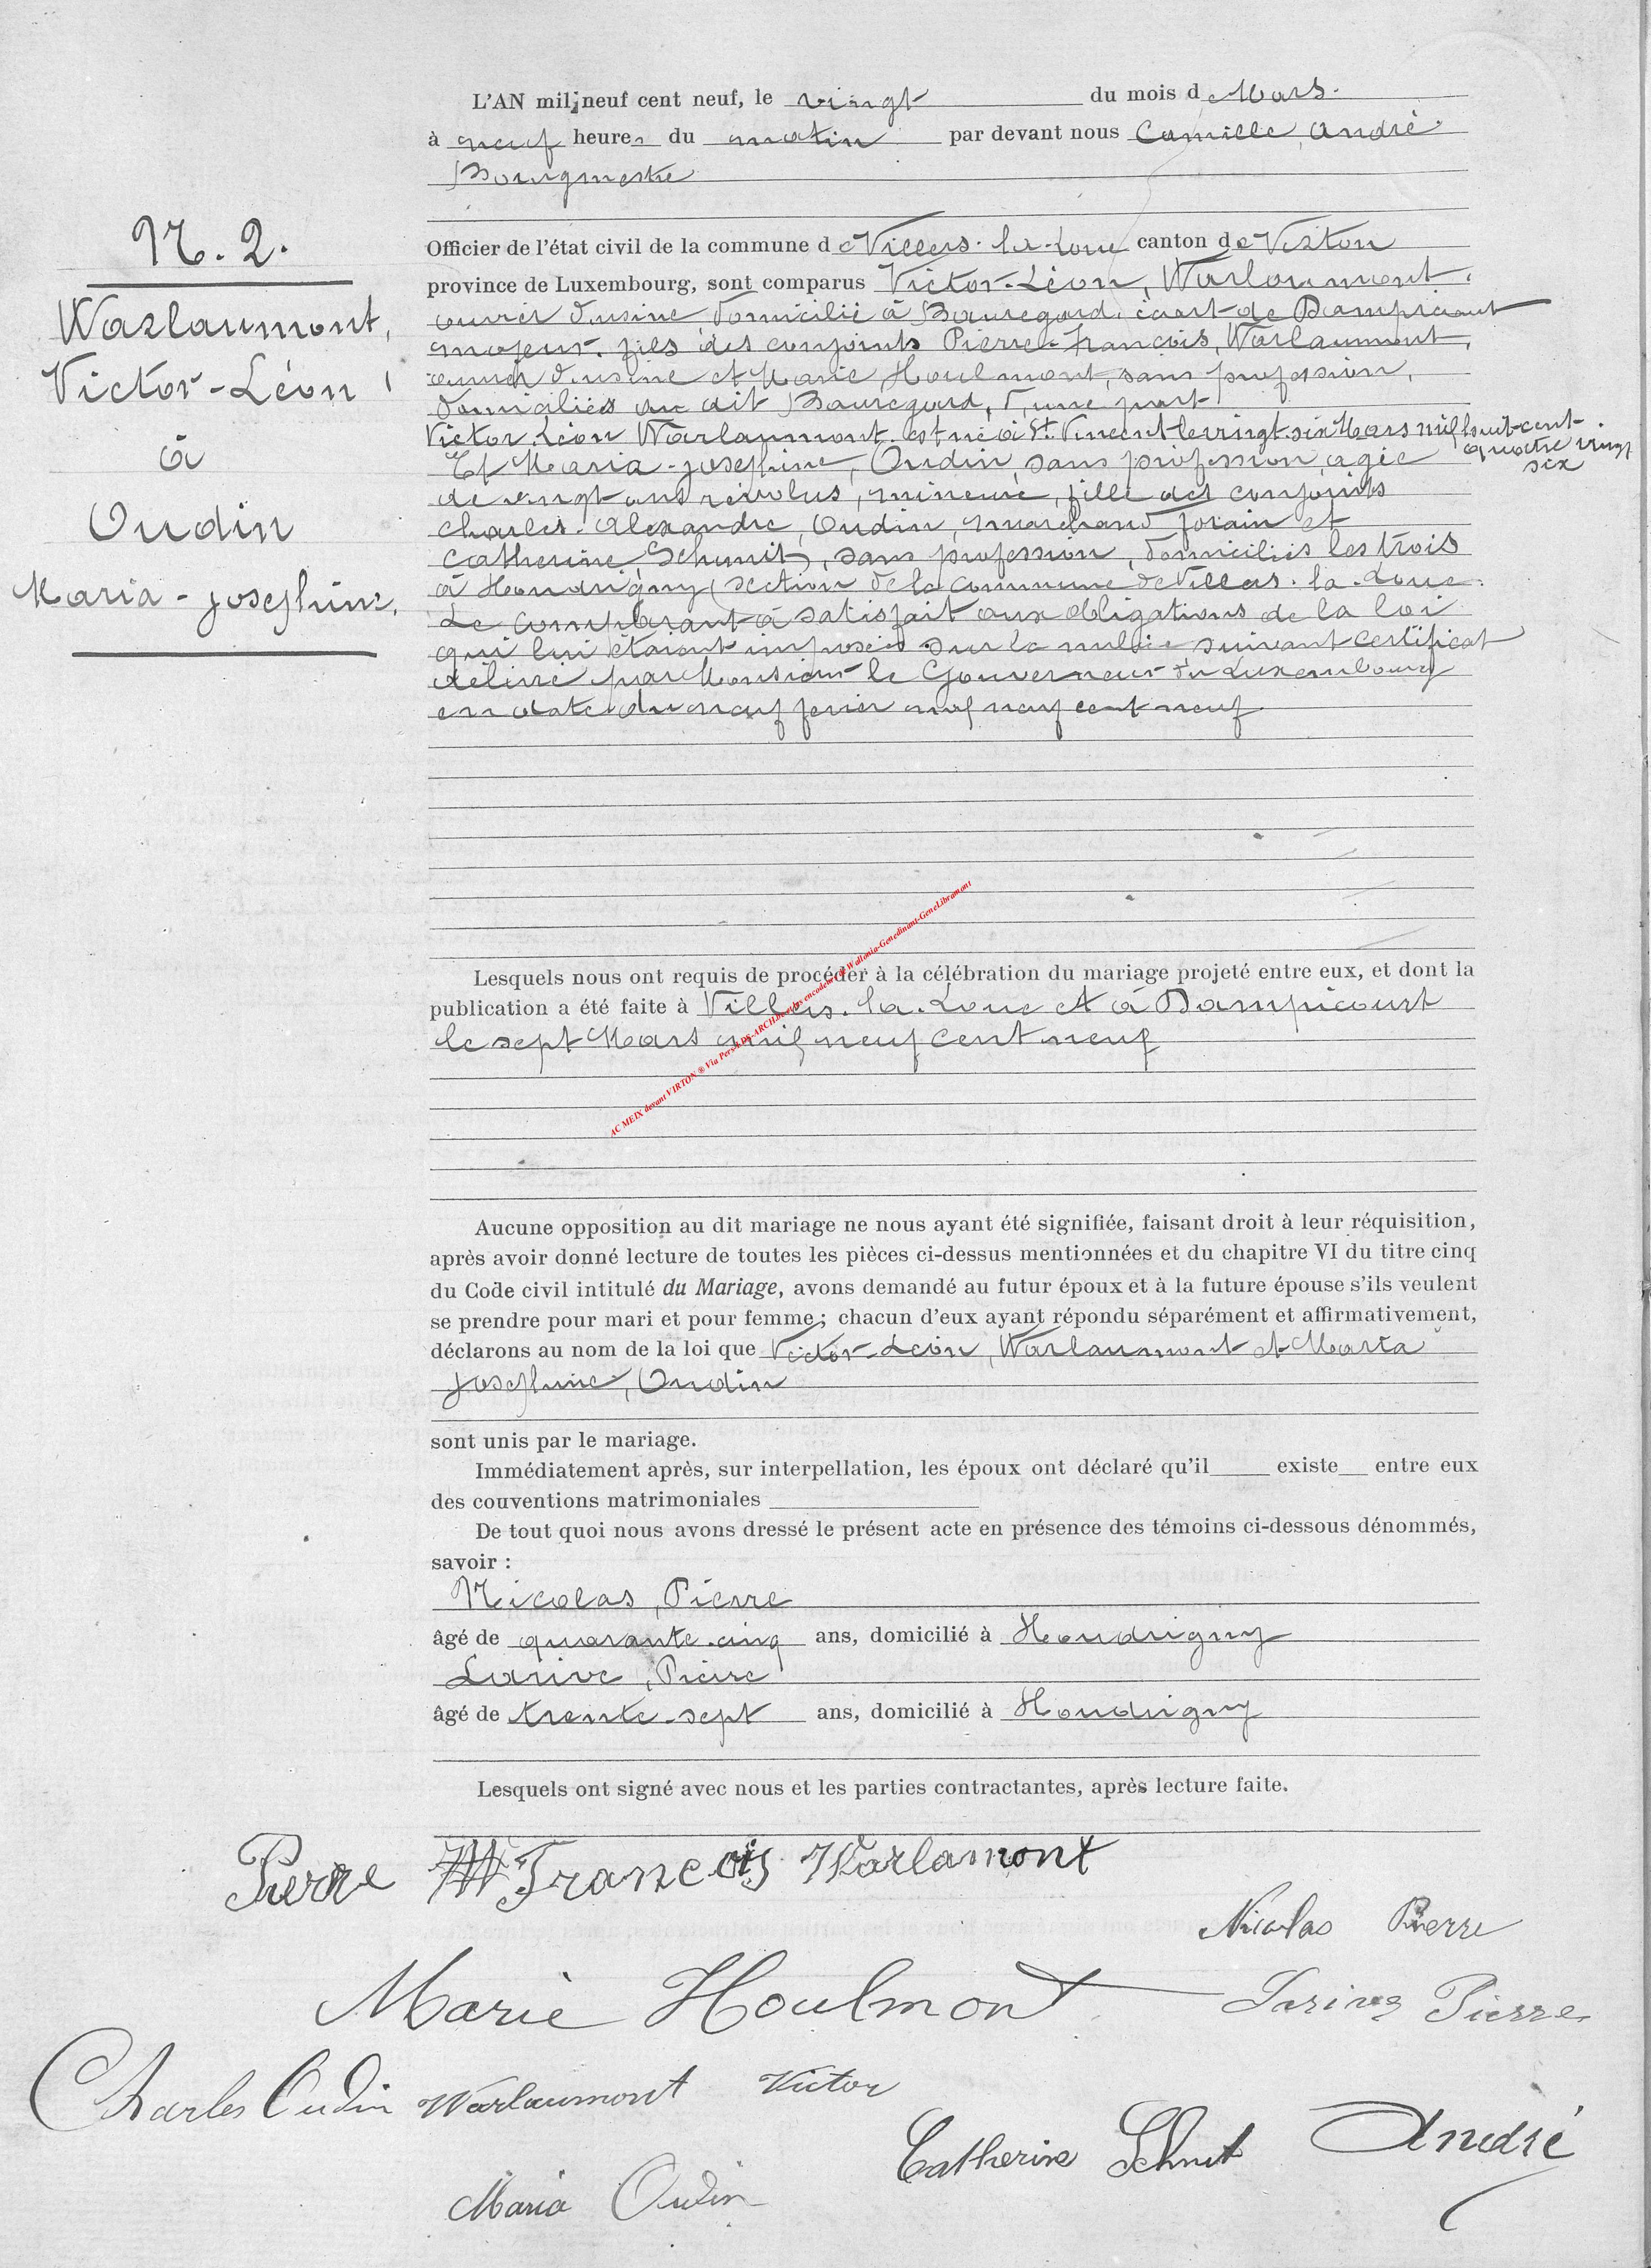 L'AN mil neuf cent neuf, le vingt du mois de Mars.
à neuf heures du matin par devant nous Camille, André
Bourgmestre
N. 2.
Warlaumont,
Victor-Léon
à
Oudin
Maria-Josephine.
Officier de l'état civil de la commune de Villers-la-Loue canton de Virton
province de Luxembourg, sont comparus Victor-Léon, Warlaumont,
ouvrier d'usine domicilié à Bauregard, écart de Dampicourt
majeur, fils des conjoints Pierre-François, Warlaumont,
ouvrier d'usine et Marie, Houlmont, sans profession,
domiciliés au dit Bauregard, d'une part
Victor Léon Warlaumont est né à St. Vincent le vingt-six Mars mil huit-cent-
quatre vingt
six
Et Maria-Josephine, Oudin, sans profession, agée
de vingt ans révolus, mineure, fille des conjoints
Charles-Alexandre, Oudin, marchand forain et
Catherine, Schmit, sans profession, domiciliés les trois
à Houdrigny, section de la commune de Villers-la-Loue.
Le comparant a satisfait aux obligations de la loi
qui lui étaient imposées sur la milice suivant certificat
délivré par Monsieur le Gouverneur du Luxembourg
en date du neuf fevrier mil neuf cent neuf
Lesquels nous ont requis de procéder à la célébration du mariage projeté entre eux, et dont la
publication a été faite à Villers-la-Loue et à Dampicourt
le sept Mars mil neuf cent neuf
AC MEIX devant VIRTON ® Via Person DS-ARCH. Wallonia-Genedinant-GeneLibramont
Aucune opposition au dit mariage ne nous ayant été signifiée, faisant droit à leur réquisition,
après avoir donné lecture de toutes les pièces ci-dessus mentionnées et du chapitre VI du titre cinq
du Code civil intitulé du Mariage, avons demandé au futur époux et à la future épouse s'ils veulent
se prendre pour mari et pour femme; chacun d'eux ayant répondu séparément et affirmativement,
déclarons au nom de la loi que Victor-Léon, Warlaumont et Maria
Josephine, Oudin
sont unis par le mariage.
Immédiatement après, sur interpellation, les époux ont déclaré qu'il existe entre eux
des conventions matrimoniales
De tout quoi nous avons dressé le présent acte en présence des témoins ci-dessous dénommés,
savoir :
Nicolas, Pierre
âgé de quarante-cinq ans, domicilié à Houdrigny
Larive, Pierre
âgé de trente-sept ans, domicilié à Houdrigny
Lesquels ont signé avec nous et les parties contractantes, après lecture faite.
Pierre Francois Warlamont
Nicolas Pierre
Marie Houlmont
Larive Pierre
Charles Oudin Warlaumont Victor
Catherine Schmit André
Maria Oudin